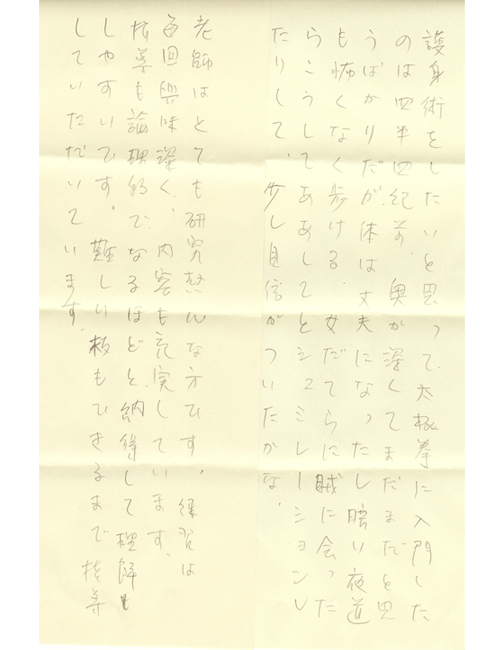 護身術をしたいと思って、太極拳に入門した
のは四半四紀前、奥が深くてまだまだと思
うばかりだが、体は丈夫になったし暗い夜道
も怖くなく歩ける。女だてらに賊に会った
らこうしてああしてとシュミレーションし
たりして、少し自信がついたかな。
老師はとても研究熱心な方です。練習は
毎回興味深く、内容も充実しています。
指導も論理的で、なるほどと納得して理解も
しやすいです。難しい技もできるまで指導
していただいています。